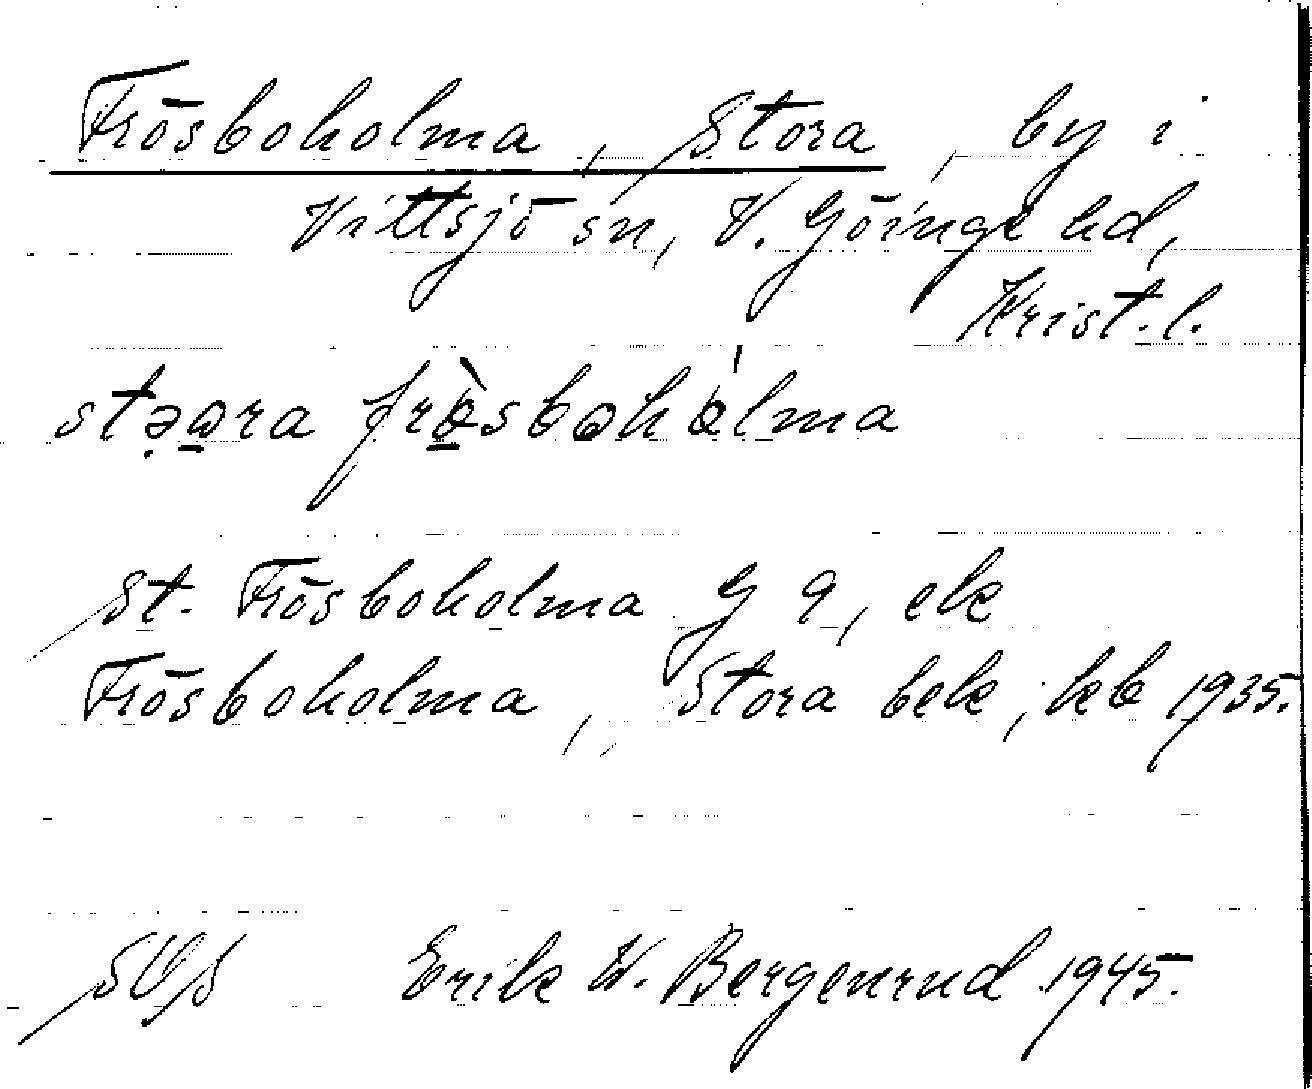 Frösboholma, Stora, by i
Vittsjö sn, V. Göinge hd,
Krist. l.
Frösboholma
St. Frösboholma G 9, ek
Frösboholma, Stora bek, kb 1935.
Erik W. Bergenrud 1945.